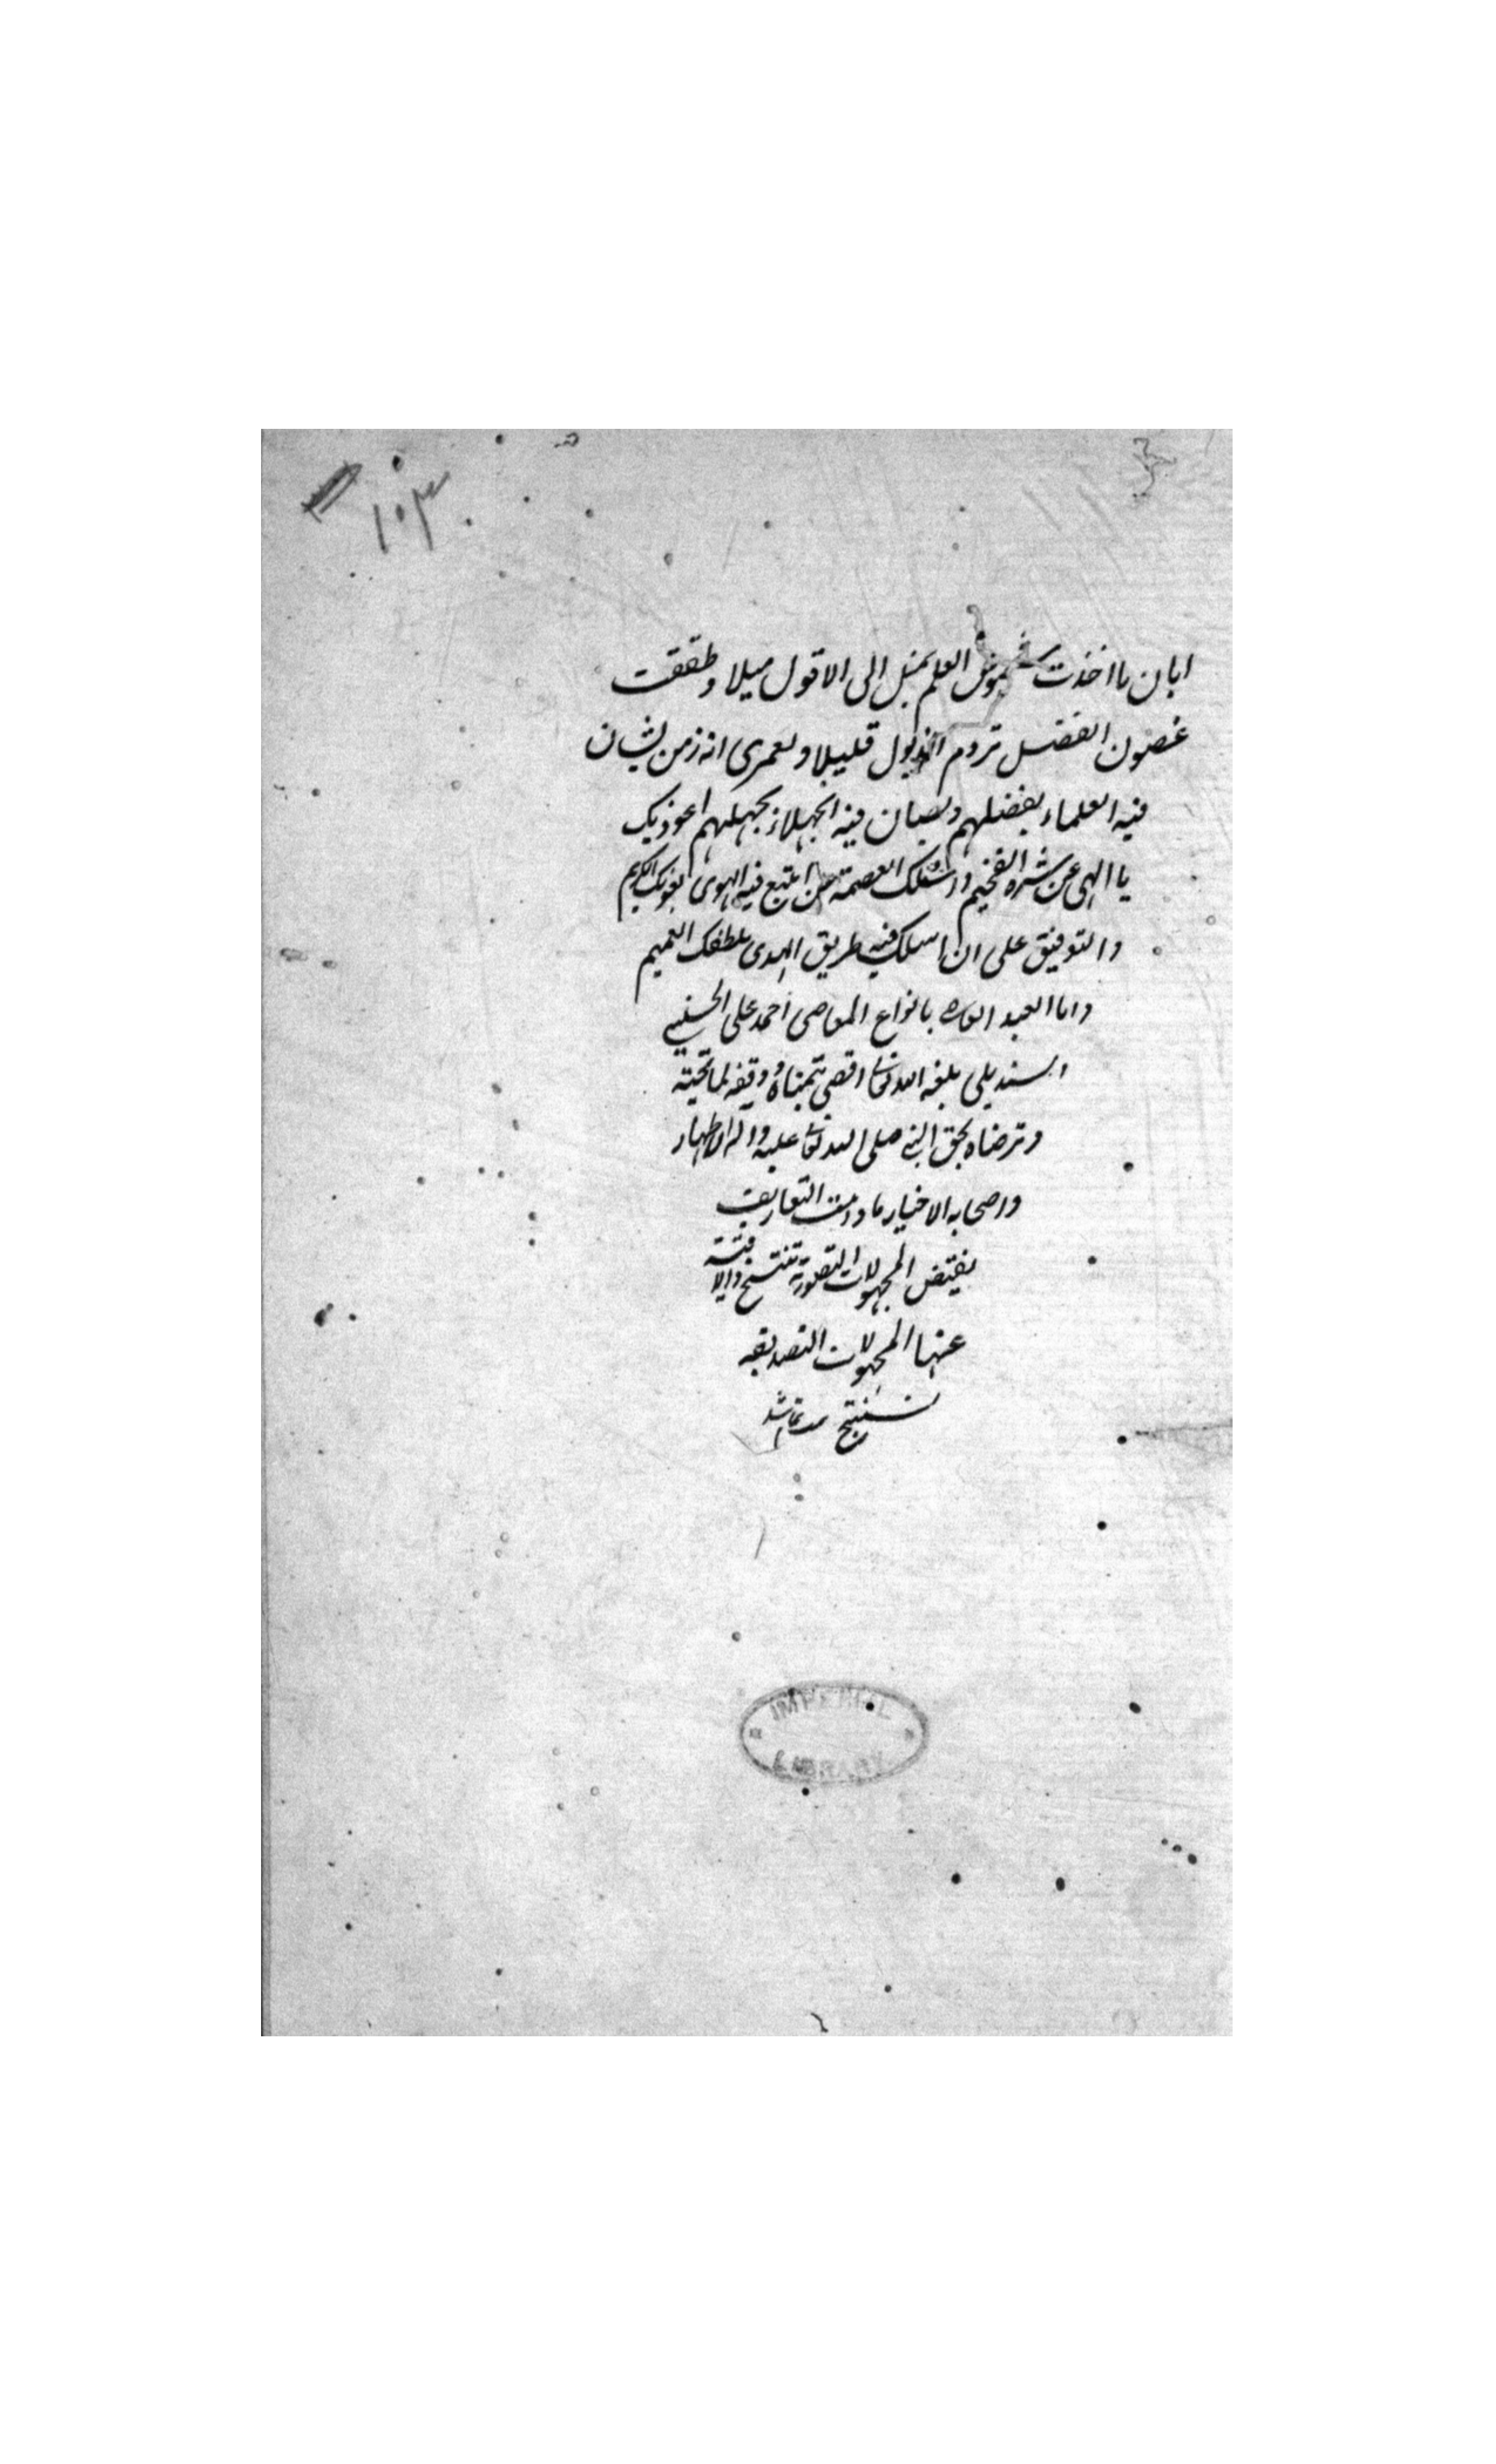 ١٠٣
ابان ما اخذت شموس العلم تميل الى الافول ميلا وطفقت
غصون الفضل تروم الذبول قليلا ولعمرى انه زمن يشان
فيه العلماء بفضلهم ويصان فيه الجهلاء بجهلهم اعوذ بك
يا الهى عن شره الفخيم واسئلك العصمة عن اتبع فيه الهوى بعونك الكريم
والتوفيق على ان اسلك فيه طريق الهدى بلطفك العميم
وانا العبد بانواع المعاصى احمد على الحسينى
السنديلى بلغه الله تعالى اقصى متمناه ووفقه لما يحبه
وترضاه بحق النبى صلى الله تعالى عليه واله الاطهار
واصحابه الاخيار ما دامت التعاريف
المجهولات التصورية
عنها المجهولات التصديقيه
تستنتج تمام شد
IMPERIAL
LIBRARY